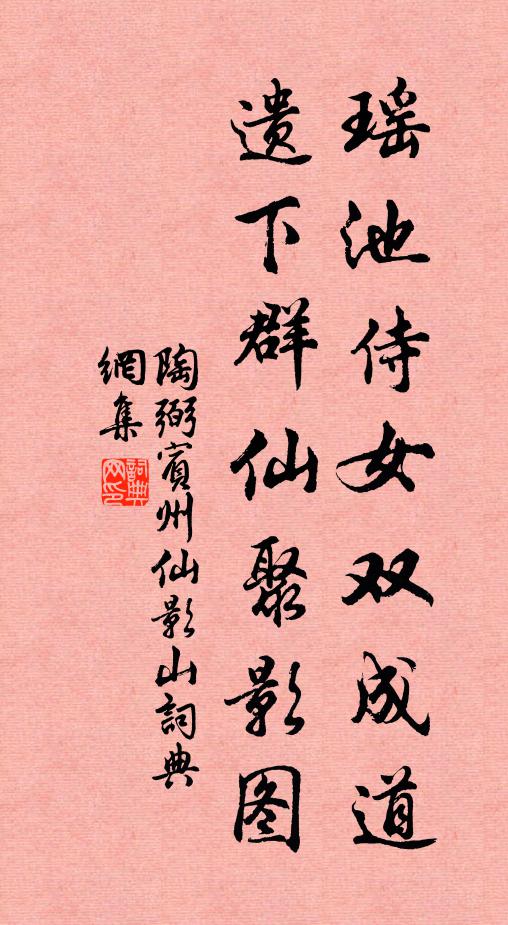 瑶池侍女双成道
遗下群仙聚影图
陶弼賓州仙影山詞典
網集
詞典網印